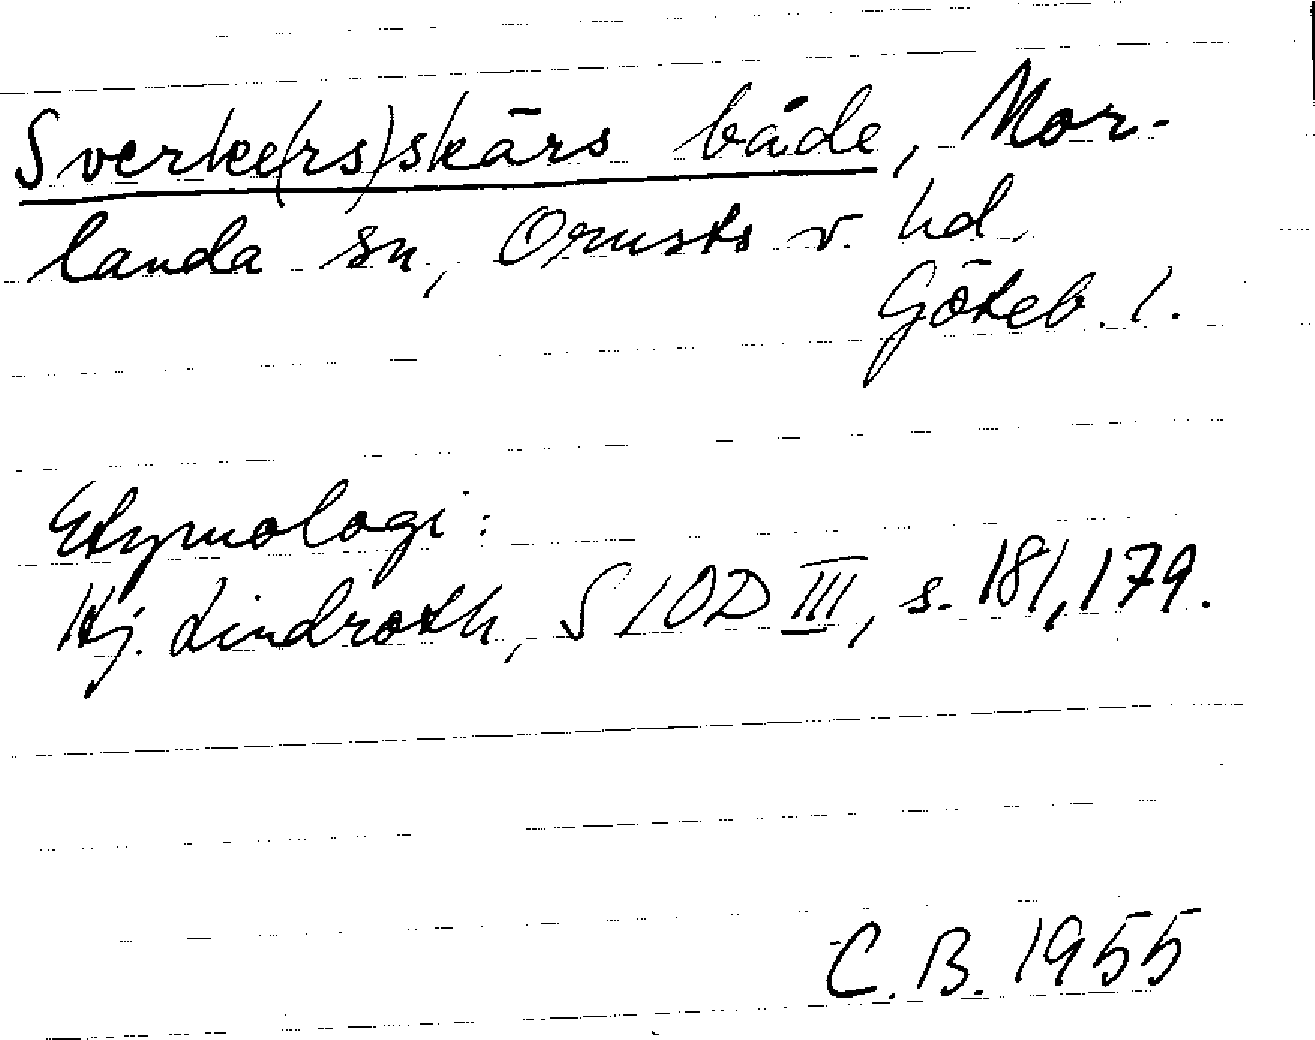 Sverke(rs)skärs både, Mor-
landa sn, Orusts v. hd,
Göteb. l.
Etymologi:
Hj. Lindroth, SIOD III, s. 181, 179.
C. B. 1955